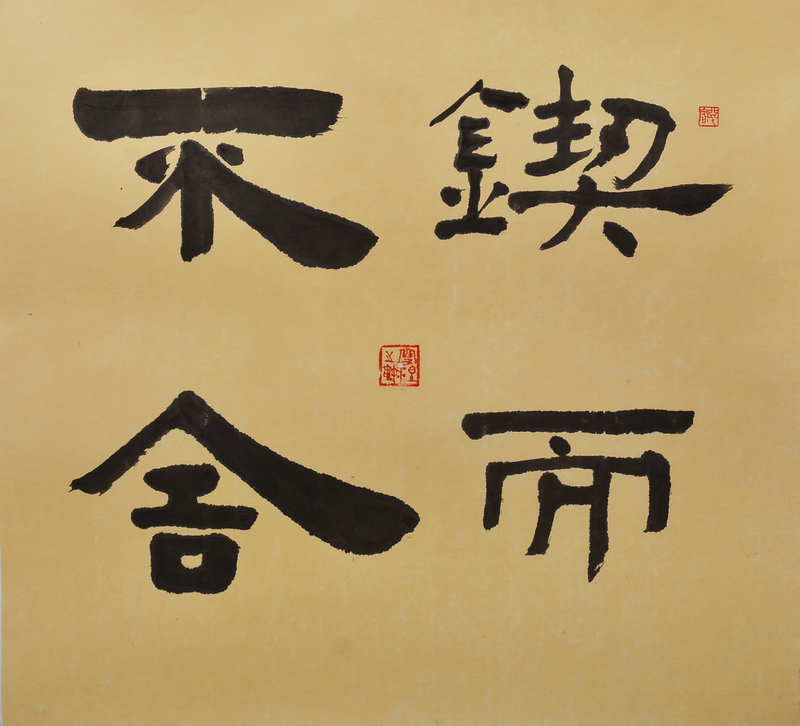 鍥而
不舍